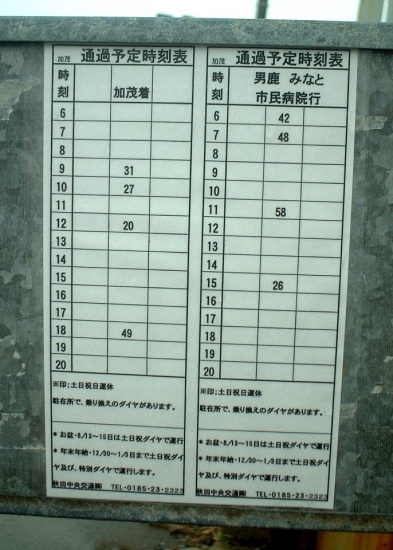 加茂 通過予定時刻表
時刻 加茂着
6
7
8
9 31
10 27
11
12 20
13
14
15
16
17
18 49
19
20
※印;土日祝日運休
駐在所で、乗り換えのダイヤがあります。
* お盆・8/13～15日は土日祝ダイヤで運行
* 年末年始・12/30～1/3日まで土日祝ダイ
ヤ及び、特別ダイヤで運行します。
秋田中央交通㈱ TEL-0185-23-2323
加茂 通過予定時刻表
時刻 男鹿 みなと
市民病院行
6 42
7 48
8
9
10
11 58
12
13
14
15 26
16
17
18
19
20
※印;土日祝日運休
駐在所で、乗り換えのダイヤがあります。
* お盆・8/13～15日は土日祝ダイヤで運行
* 年末年始・12/30～1/3日まで土日祝ダイ
ヤ及び、特別ダイヤで運行します。
秋田中央交通㈱ TEL-0185-23-2323